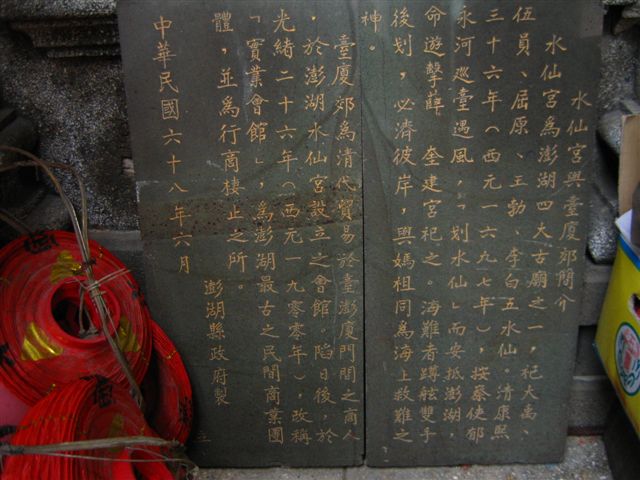 水仙宮與臺廈郊簡介
水仙宮為澎湖四大古廟之一，祀大禹、
伍員、屈原、王勃、李白五水仙。清康熙
三十六年（西元一六九七年），按蔡使郁
永河巡臺遇風，「划水仙」而安抵澎湖，
命遊擊薛 奎建宮祀之。海難者蹲舷雙手
後划，必濟彼岸，與媽祖同為海上救難之
神。
臺廈郊為清代貿易於臺澎廈門間之商人
，於澎湖水仙宮設立之會館，陷日後，於
光緒二十六年（西元一九零零年），改稱
「實業會館」，為澎湖最古之民間商業團
體，並為行商棲止之所。
澎湖縣政府製
立
中華民國六十八年六月